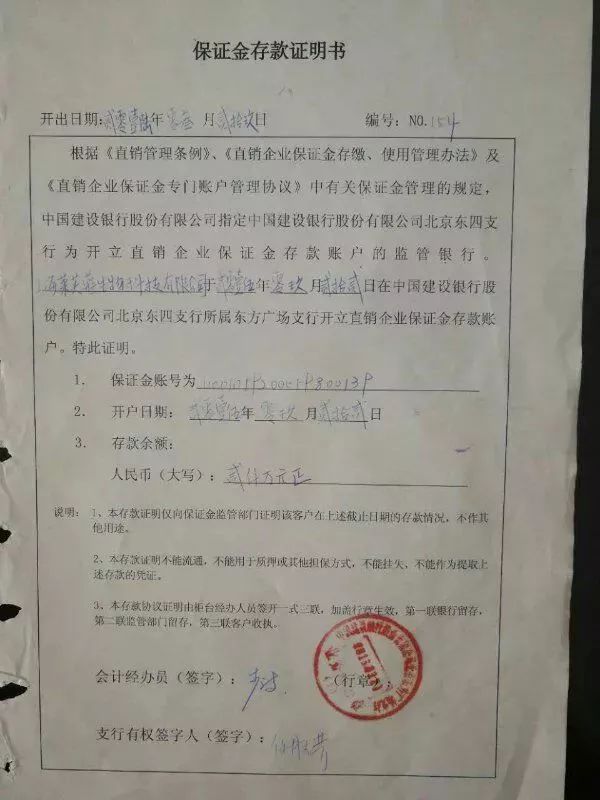 保证金存款证明书
开出日期:贰零壹陆年零叁月贰拾玖日 编号:NO.154
根据《直销管理条例》、《直销企业保证金存缴、使用管理办法》及
《直销企业保证金专门账户管理协议》中有关保证金管理的规定,
中国建设银行股份有限公司指定中国建设银行股份有限公司北京东四支
行为开立直销企业保证金存款账户的监管银行。
生物科技有限公司于贰零壹伍年零玖月贰拾贰日在中国建设银行股
份有限公司北京东四支行所属东方广场支行开立直销企业保证金存款账
户。特此证明。
1. 保证金账号为
2. 开户日期: 贰零壹伍年零玖月贰拾贰日
3. 存款余额:
人民币(大写): 贰仟万元正
说明: 1、本存款证明仅向保证金监管部门证明该客户在上述截止日期的存款情况,不作其
他用途。
2、本存款证明不能流通,不能用于质押或其他担保方式,不能挂失、不能作为提取上
述存款的凭证。
3、本存款协议证明由柜台经办人员签开一式三联,加盖行章生效,第一联银行留存,
第二联监管部门留存,第三联客户收执。
会计经办员(签字): (行章)
支行有权签字人(签字):